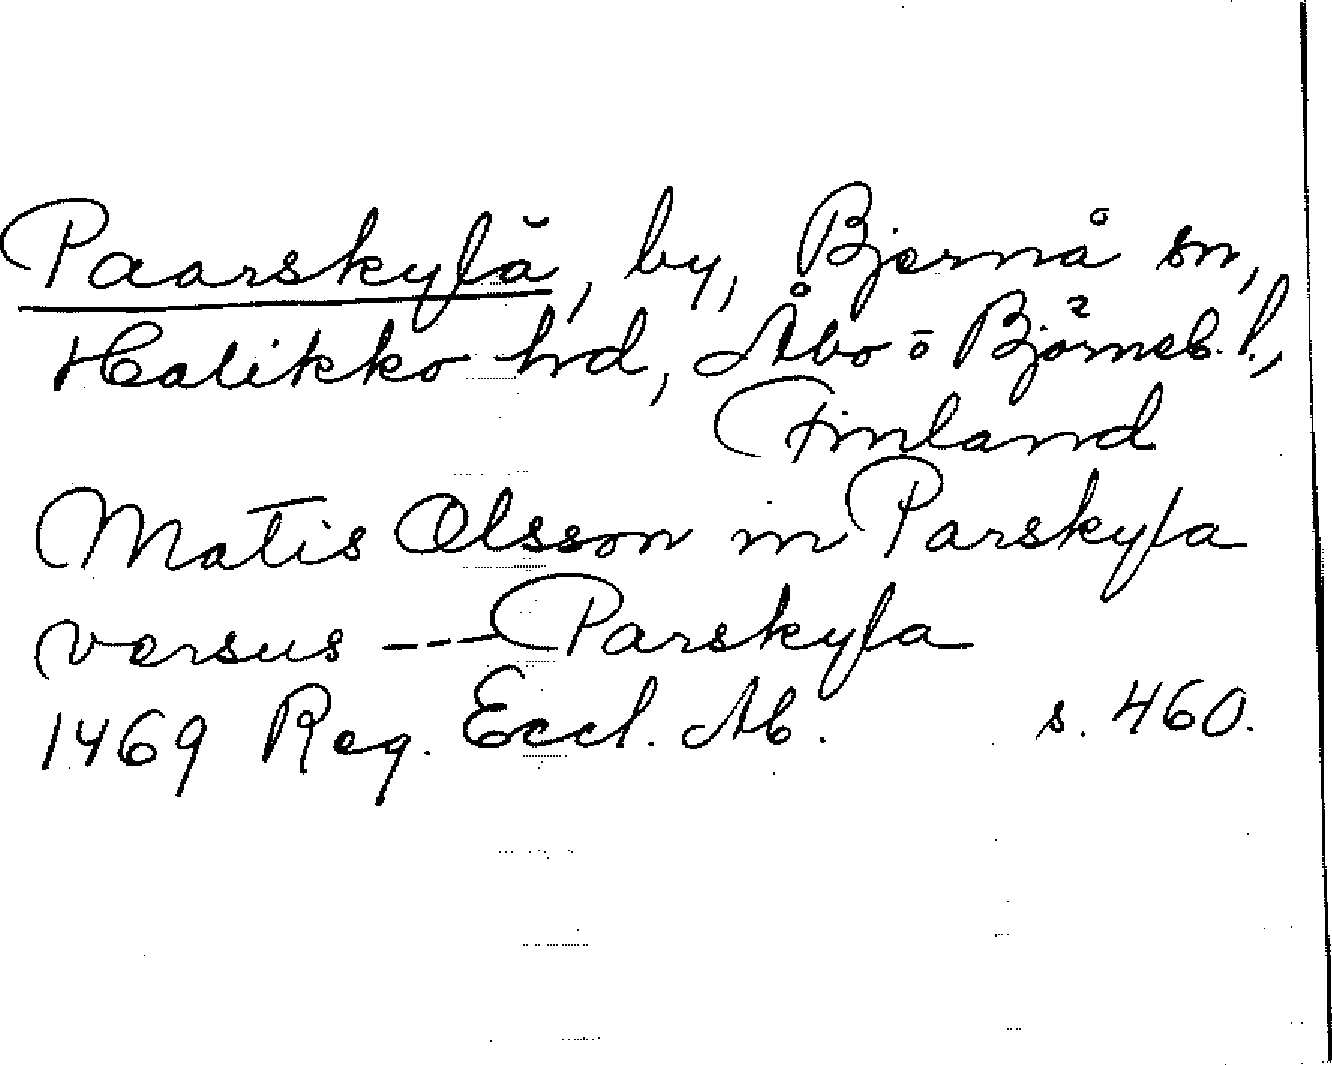 Paarskylä, by, Bjernå sn,
Halikko hd, Åbo o Björneb. l.,
Finland
Matis Olsson in Parskyla
versus --- Parskyla
1469 Reg. Eccl. Ab. s. 460.